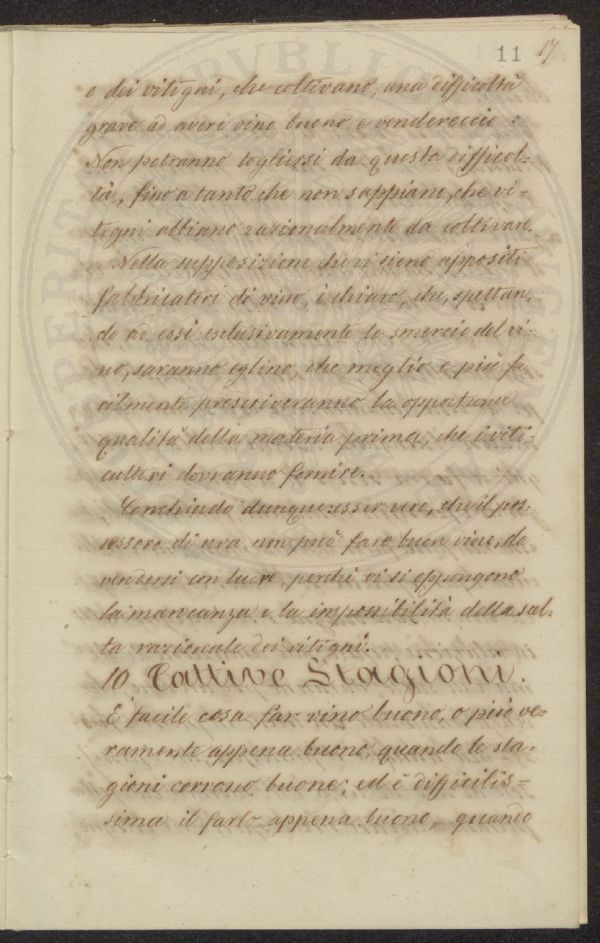 11 17
o dei vitigni, che coltivano, una difficoltà
grave ad avere vino buono e vendereccio.
Non potranno togliersi da questa difficol=
tà, fino a tanto che non sappiano, che vi=
tigni abbiano razionalmente da coltivare.
Nella supposizione che vi sieno appositi
fabbricatori di vino, è chiaro, che, spettan=
do ad essi esclusivamente lo smercio del vi=
no, saranno eglino, che meglio e più fa=
cilmente prescriveranno la opportuna
qualità della materia prima, che i viti=
cultori dovranno fornire.
Conchiudo dunque esser vero, che il pos=
sessore di uva non può fare buon vino, da
vendersi con lucro, perchè vi si oppongono
la mancanza e la impossibilità della scel=
ta razionale dei vitigni.
10 Cattive Stagioni.
È facile cosa far vino buono, o più ve=
ramente appena buono, quando le sta=
gioni corrono buone; ed è difficilis=
sima il farlo appena buono, quando